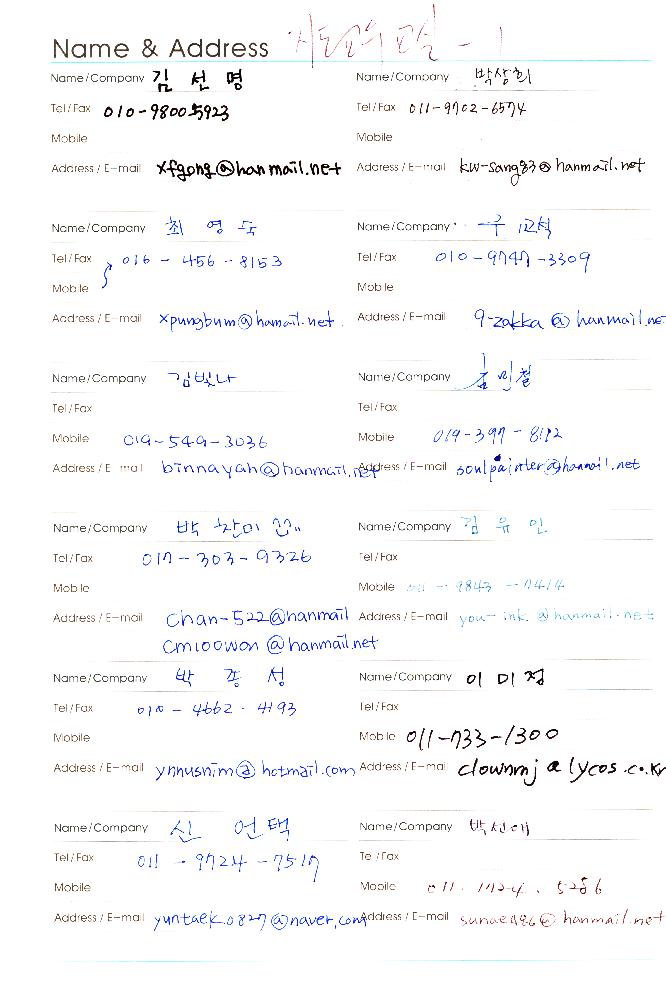 Name & Address
Name/Company 김 선 명
Tel/Fax 010-9800-5923
Mobile
Address / E-mail xfgong@hanmail.net
Name/Company 박상희
Tel/Fax 011-9702-6574
Mobile
Address / E-mail kw-sang83@hanmail.net
Name/Company 최 영
Tel/Fax 016 - 456 - 8153
Mobile
Address / E-mail xpungbum@hanmail.net
Name/Company
Tel/Fax 010-9747-3309
Mobile
Address / E-mail 9-zakka @ hanmail.ne
Name/Company 김빛나
Tel/Fax
Mobile 019-549-3036
Address / E-mail binnayah@hanmail.net
Name/Company
Tel/Fax
Mobile 019-397-8112
Address / E-mail soulpainter@hanmail.net
Name/Company 박
Tel/Fax 017-303-9326
Mobile
Address / E-mail chan-522@hanmail
cm100won @hanmail.net
Name/Company 김 유 인
Tel/Fax
Mobile 9843 - 7414
Address / E-mail you-ink @hanmail.net
Name/Company 박 성
Tel/Fax 010 - 4662 - 4193
Mobile
Address / E-mail ynnusnim@hotmail.com
Name/Company 이 미 정
Tel/Fax
Mobile 011-733-1300
Address / E-mail clownmj @ lycos.co.kr
Name/Company 신 언택
Tel/Fax 011 - 9724 - 7517
Mobile
Address / E-mail yuntaek0827@naver.com
Name/Company 박선애
Tel/Fax
Mobile 011. 1724. 5286
Address / E-mail @ hanmail.net